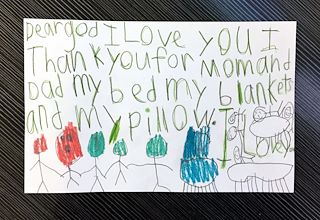 Dear god I Love you I
Thank you for Mom and
Dad my bed my blankets
and my pillow. I Love